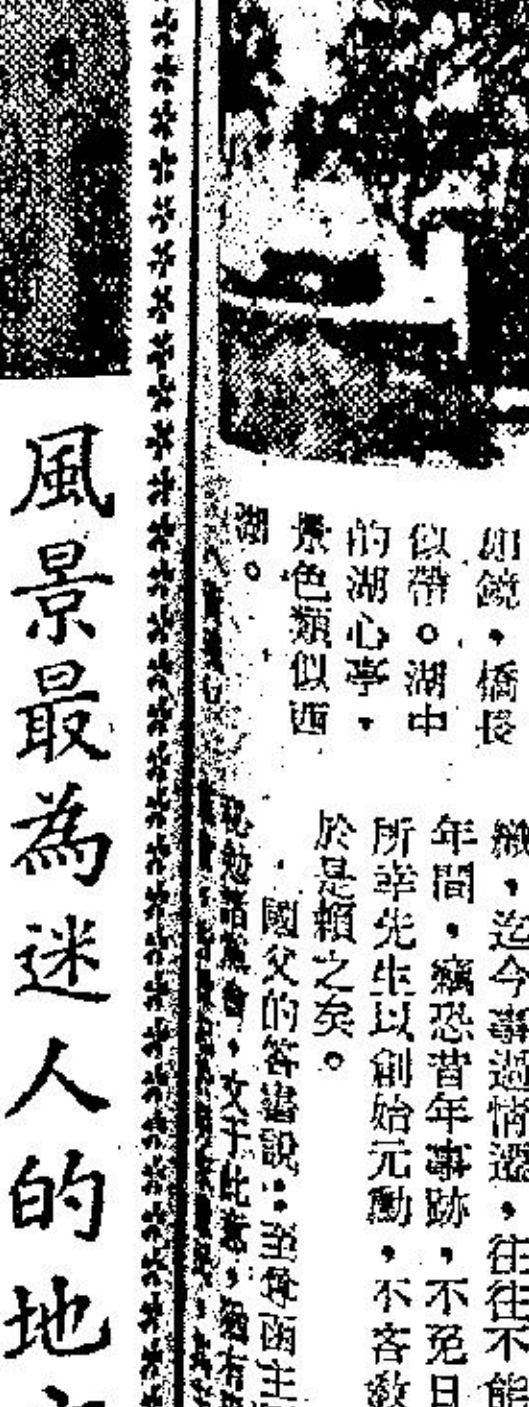 如鏡，橋長
似帶。湖中
的湖心亭，
景色類似西
湖。
織，迄今事過情遷，往往不能
年間，竊恐昔年事跡，不免日
所幸先生以創始元勳，不吝教
於是賴之矣。
國父的答書說：至每函主
風景最為迷人的地